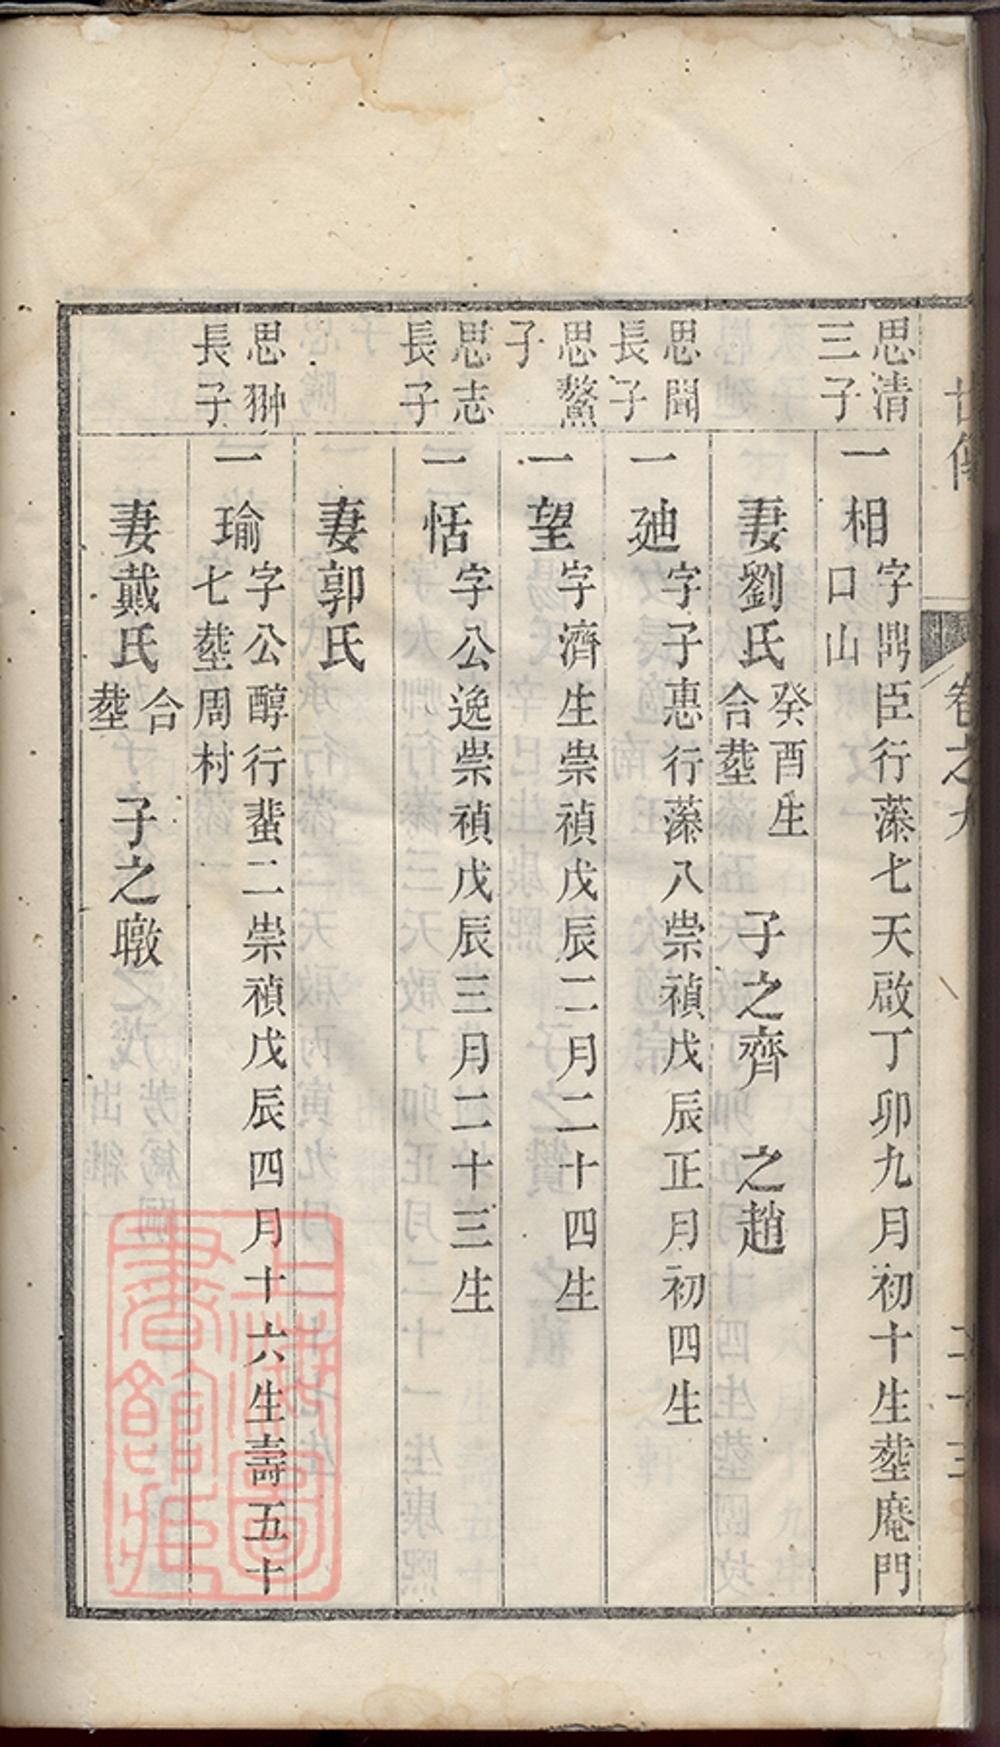 世傳
卷之九
二十三
思清
三子
一相
字鼎臣行藻七天啟丁卯九月初十生塟庵門
口山
妻劉氏
癸酉生
合塟
子之齊 之趙
思聞
長子
一廸
字子惠行藻八崇禎戊辰正月初四生
思鰲
子
一望
字濟生崇禎戊辰二月二十四生
思志
長子
一恬
字公逸崇禎戊辰三月二十三生
妻郭氏
思翀
長子
一瑜
字公醇行蜚二崇禎戊辰四月十六生壽五十
七塟周村
妻戴氏
合
塟
子之暾
上海圖書館藏